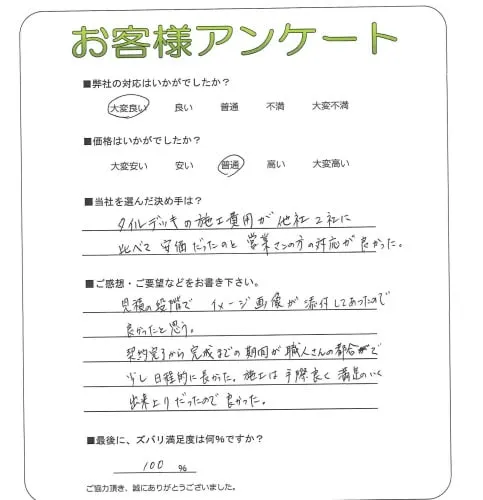 お客様アンケート
■弊社の対応はいかがでしたか？
大変良い 良い 普通 不満 大変不満
■価格はいかがでしたか？
大変安い 安い 普通 高い 大変高い
■当社を選んだ決め手は？
タイルデッキの施工費用が他社2社に
比べて安価だったのと営業さんの方の対応が良かった。
■ご感想・ご要望などをお書き下さい。
見積の段階でイメージ画像が添付してあったので
良かったと思う。
契約完了から完成までの期間が職人さんの都合で
少し日程的に長かった。施工は手際良く満足のいく
出来上りだったので良かった。
■最後に、ズバリ満足度は何％ですか？
100 ％
ご協力頂き、誠にありがとうございました。